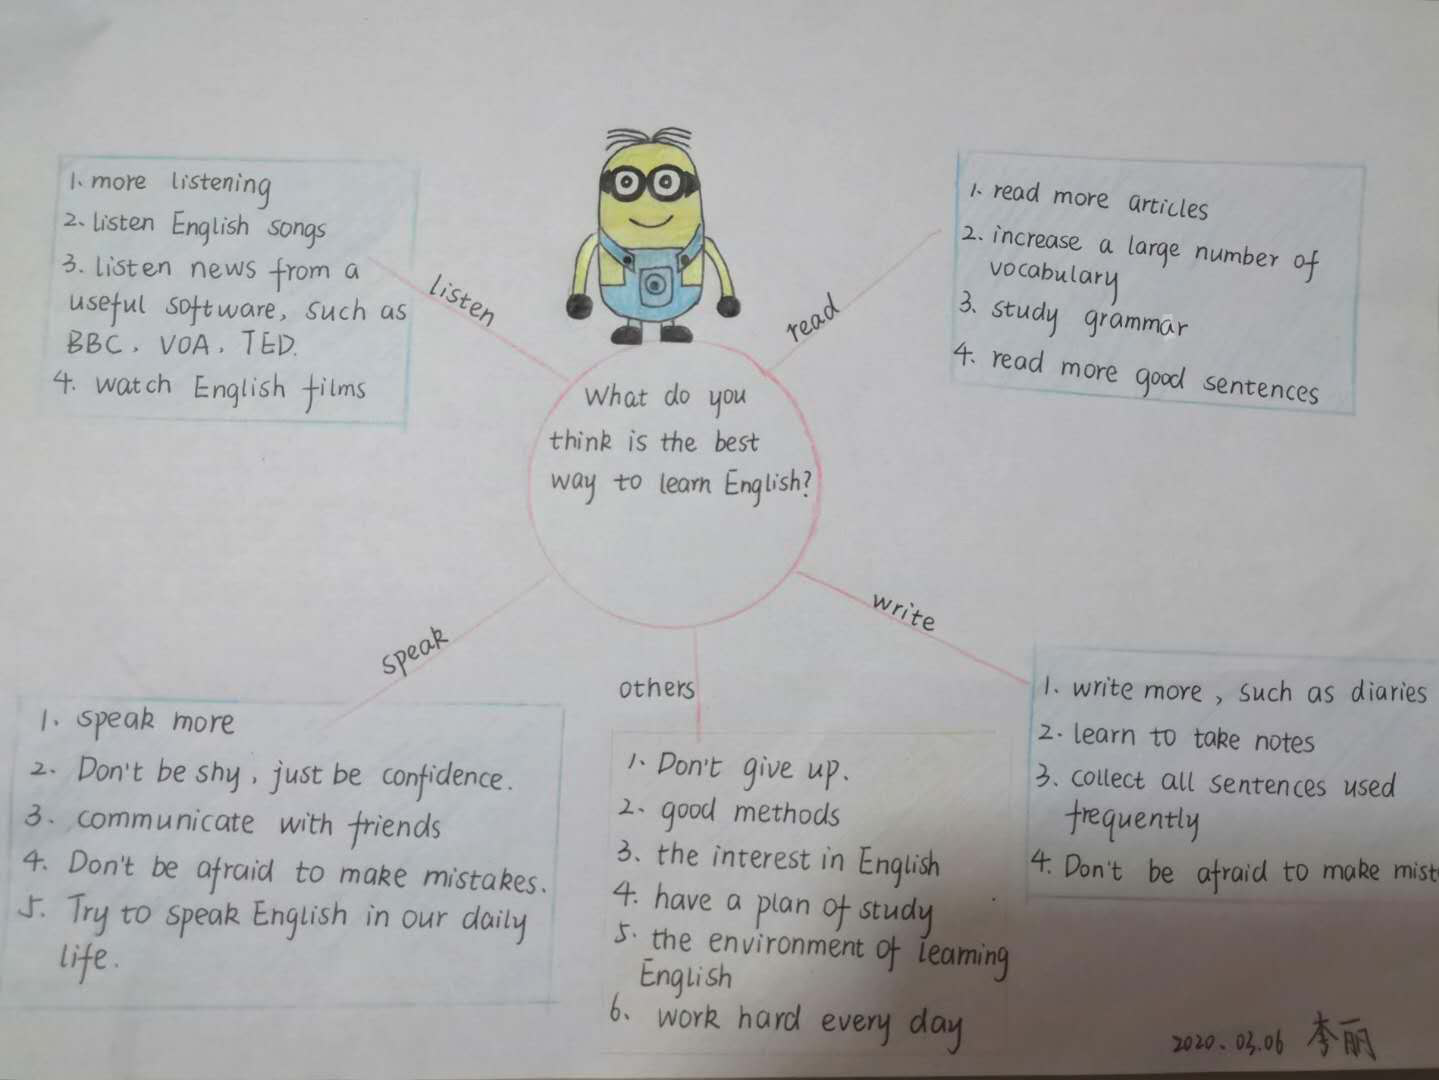 What do you
think is the best
way to learn English?
listen
1. more listening
2. listen English songs
3. listen news from a
useful software, such as
BBC, VOA, TED.
4. watch English films
read
1. read more articles
2. increase a large number of
vocabulary
3. study grammar
4. read more good sentences
speak
1. speak more
2. Don't be shy, just be confidence.
3. communicate with friends
4. Don't be afraid to make mistakes.
5. Try to speak English in our daily
life.
others
1. Don't give up.
2. good methods
3. the interest in English
4. have a plan of study
5. the environment of learning
English
6. work hard every day
write
1. write more, such as diaries
2. learn to take notes
3. collect all sentences used
frequently
4. Don't be afraid to make mist
2020.03.06 李丽